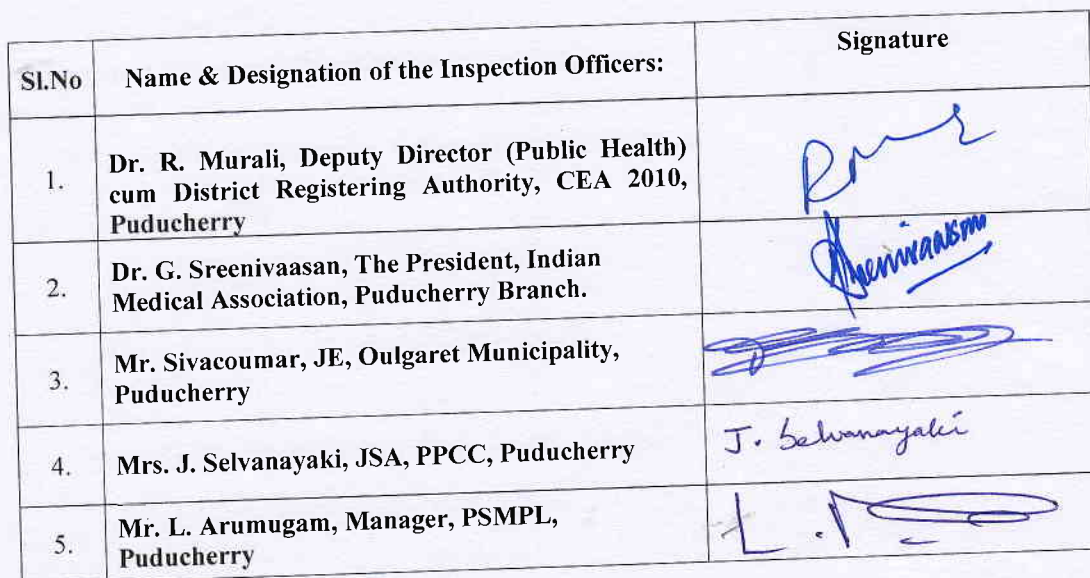 Sl.No Name & Designation of the Inspection Officers: Signature
1. Dr. R. Murali, Deputy Director (Public Health)
cum District Registering Authority, CEA 2010,
Puducherry
2. Dr. G. Sreenivaasan, The President, Indian
Medical Association, Puducherry Branch.
Sreenivaasan
3. Mr. Sivacoumar, JE, Oulgaret Municipality,
Puducherry
4. Mrs. J. Selvanayaki, JSA, PPCC, Puducherry
J. Selvanayaki
5. Mr. L. Arumugam, Manager, PSMPL,
Puducherry